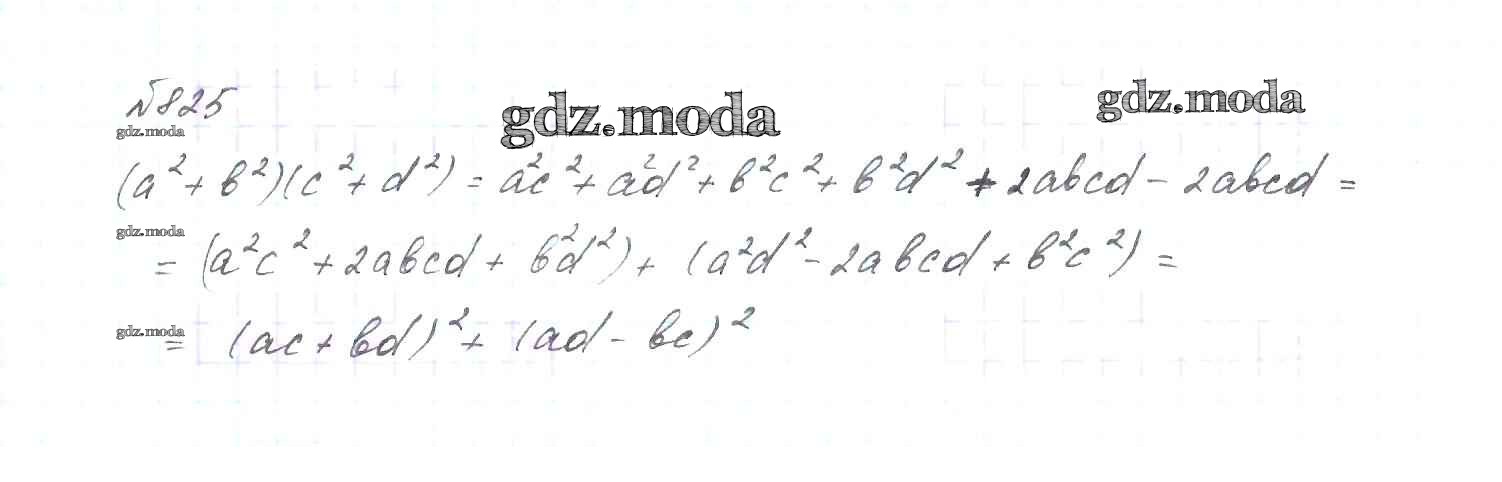 №825
gdz.moda gdz.moda gdz.moda
(a²+b²)(c²+d²) = a²c²+a²d²+b²c²+b²d²+2abcd-2abcd=
gdz.moda
=(a²c²+2abcd+b²d²)+(a²d²-2abcd+b²c²)=
gdz.moda
= (ac+bd)²+(ad-bc)²